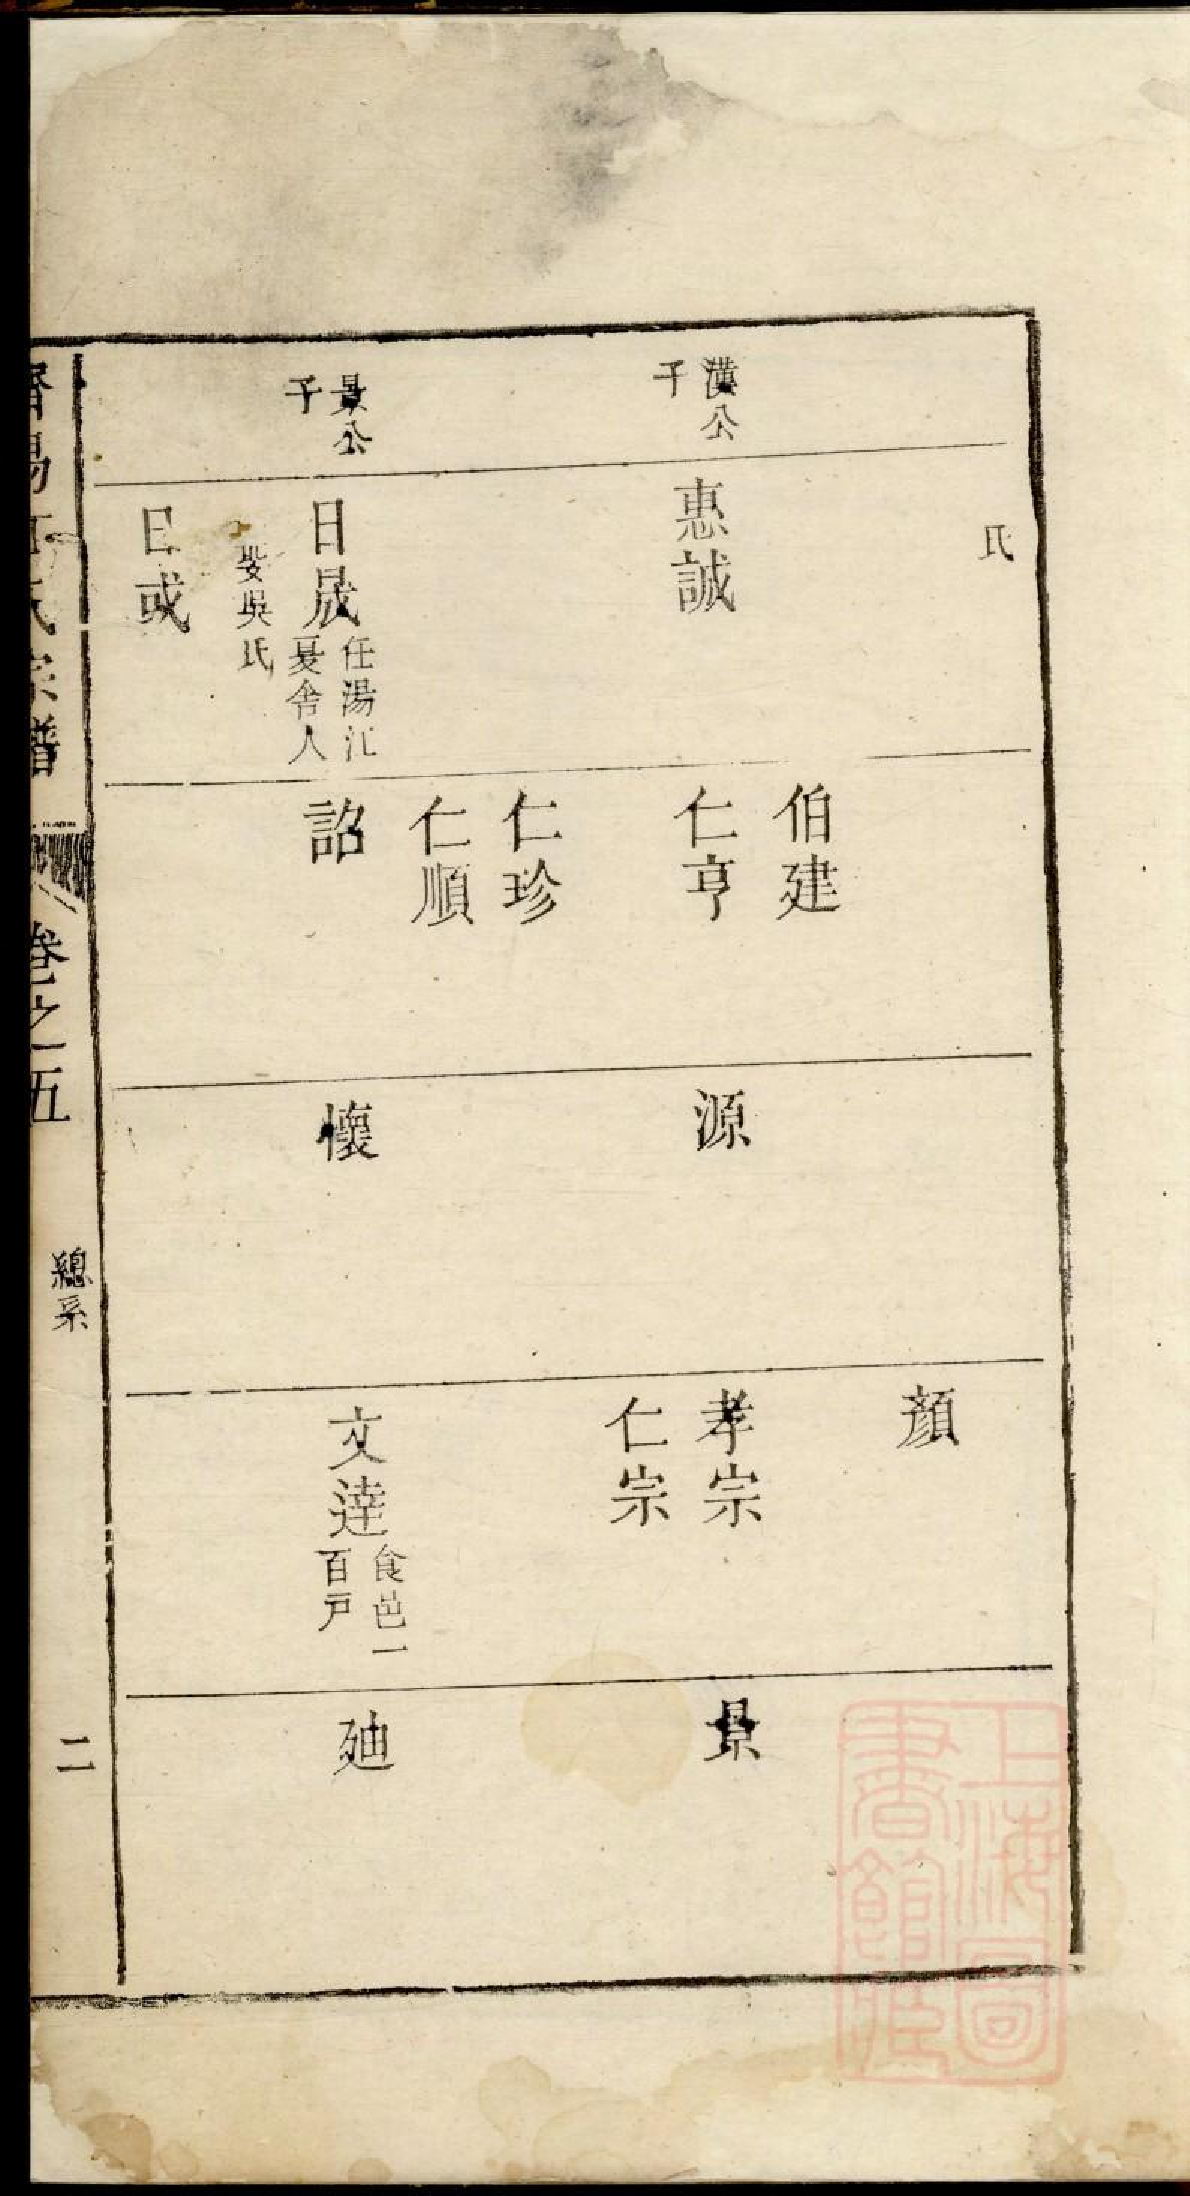 氏
漢公
子
惠誠
伯建
仁亨
仁珍
仁順
源
顏
孝宗
仁宗
景
景公
子
日晟
任湯江
夏舍人
娶吳氏
日彧
詔
懷
文達
食邑一
百戸
廸
濟陽江氏宗譜
卷之五
總系
二
上海圖
書館臧